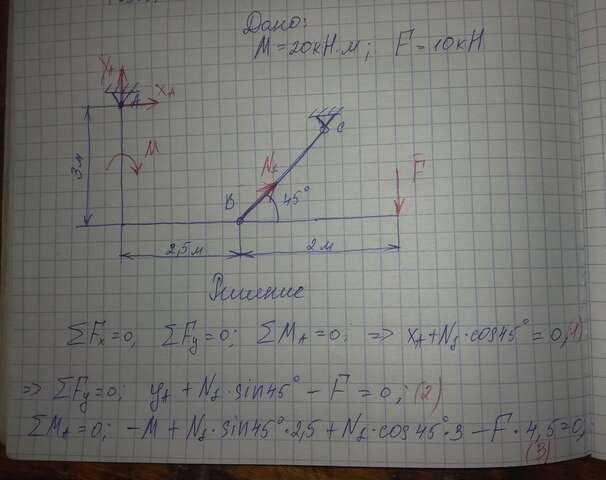 Дано:
M = 20 кН·м; F = 10 кН
YA
XA
A
M
3м
C
N1
B
45°
F
2,5м
2м
Решение
ΣFx=0, ΣFy=0; ΣMA=0; => XA+N1·cos45°=0, (1)
=> ΣFy=0; yA + N1·sin45° − F = 0; (2)
ΣMA=0; −M + N1·sin45°·2,5 + N1·cos45°·3 − F·4,5=0;
(3)